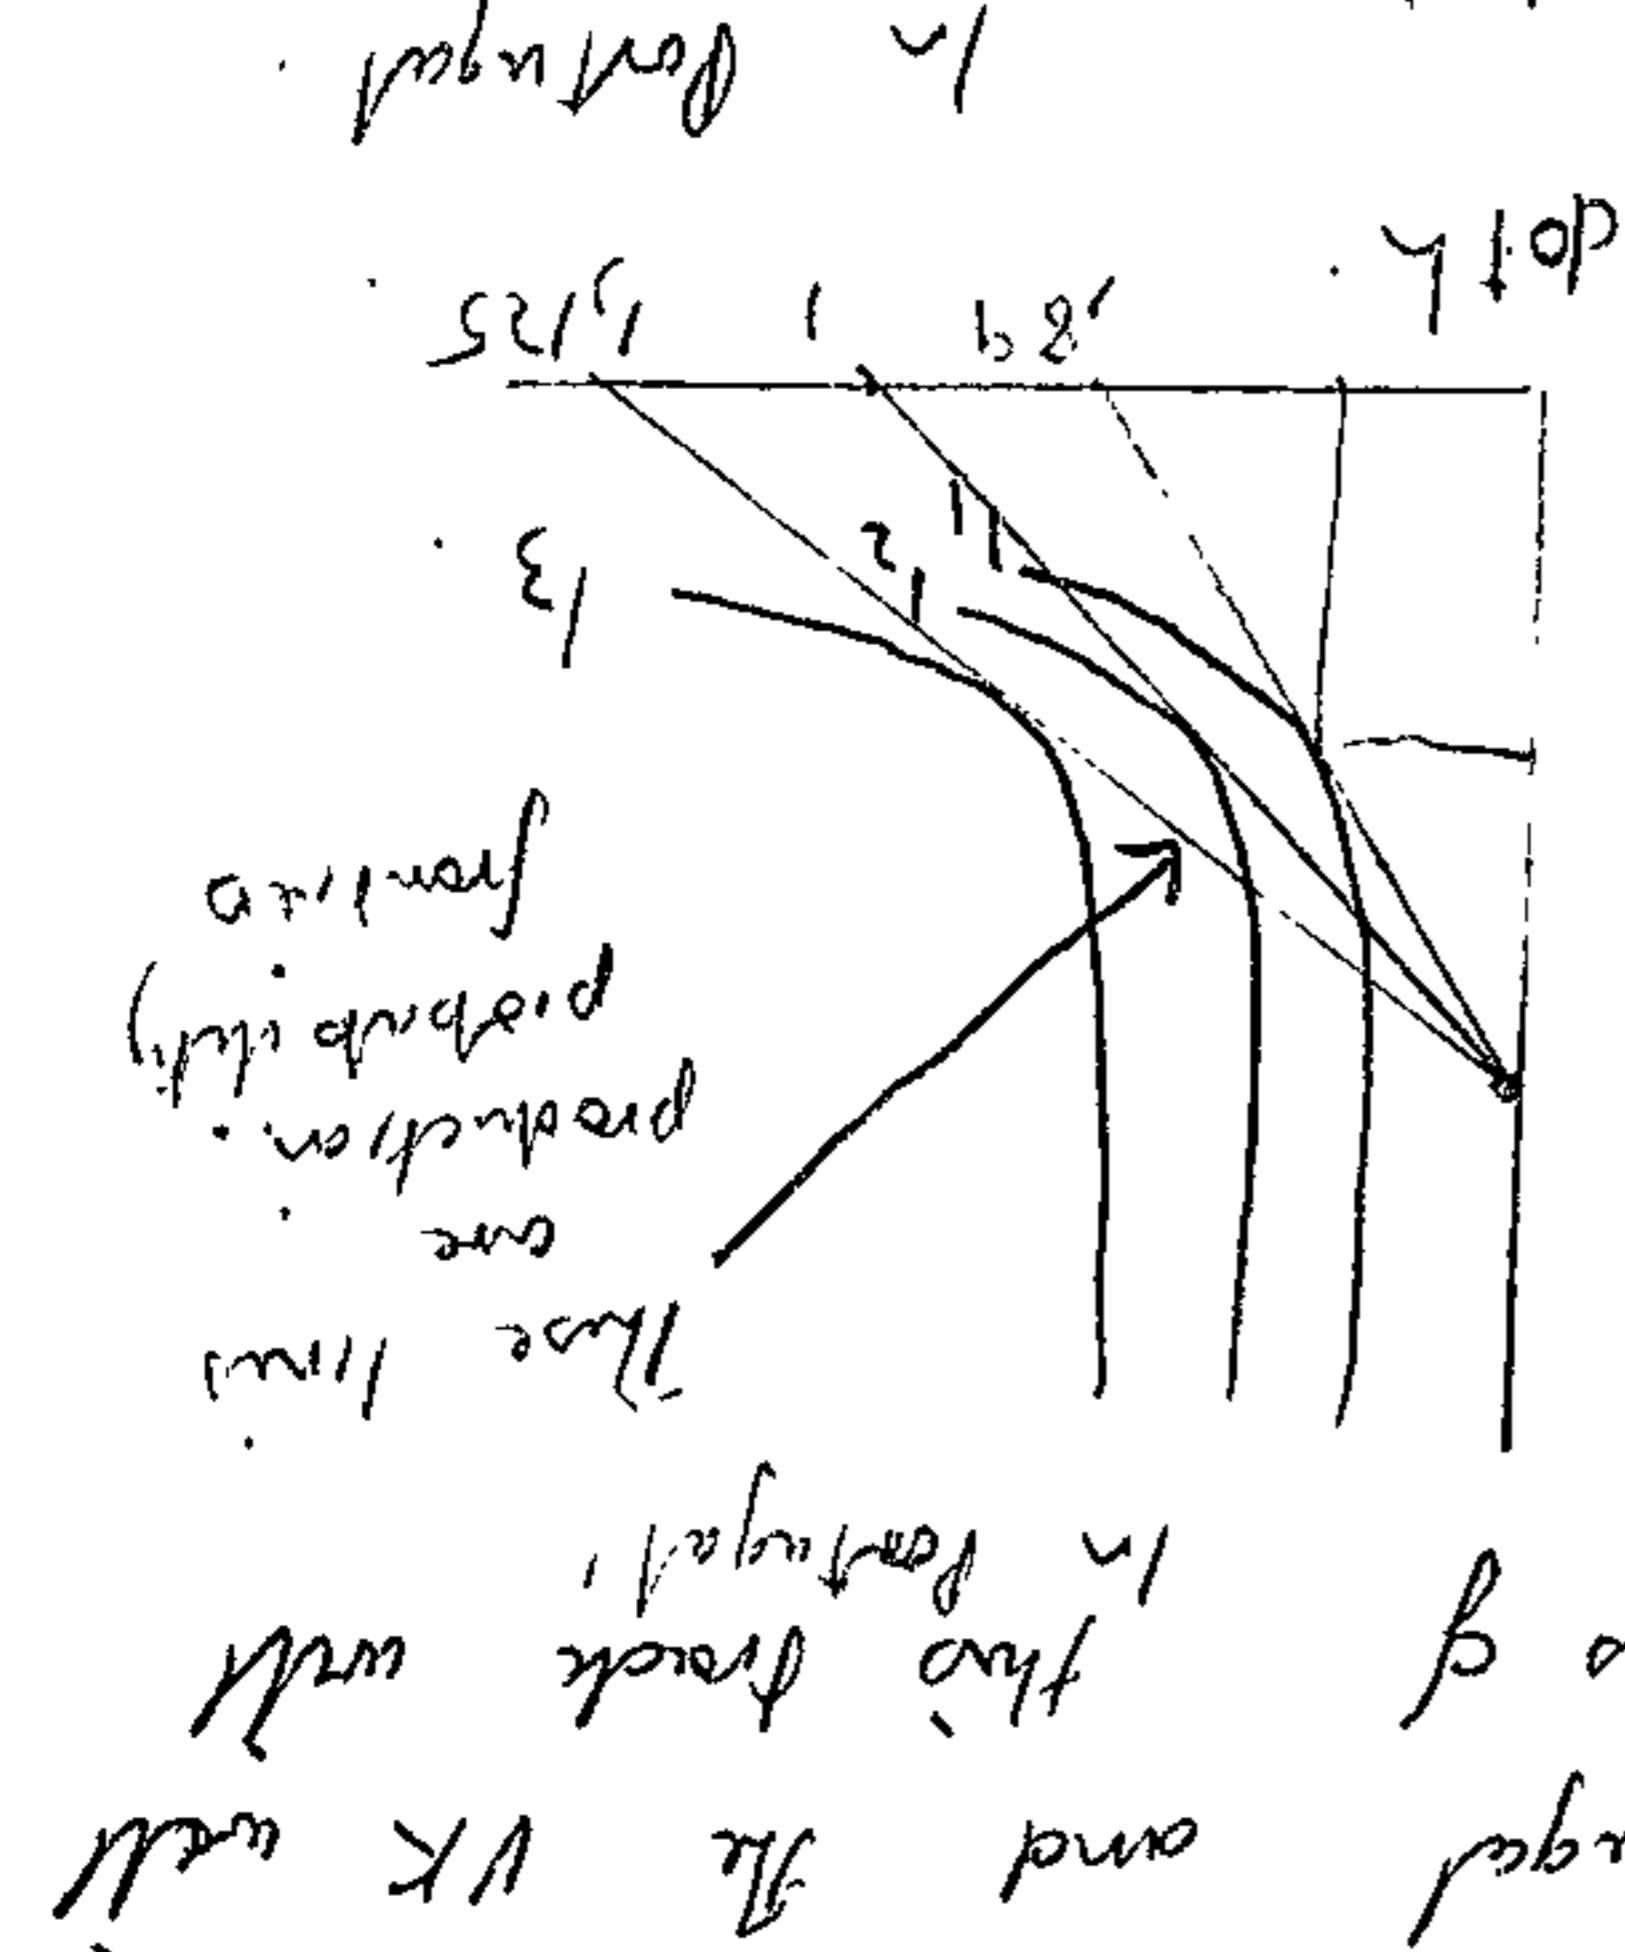 and the UK will
this trade will
In Portugal,
These lines
are
production
probability
frontier
I3
I2
I1
.89 1 1,125
both
In Portugal